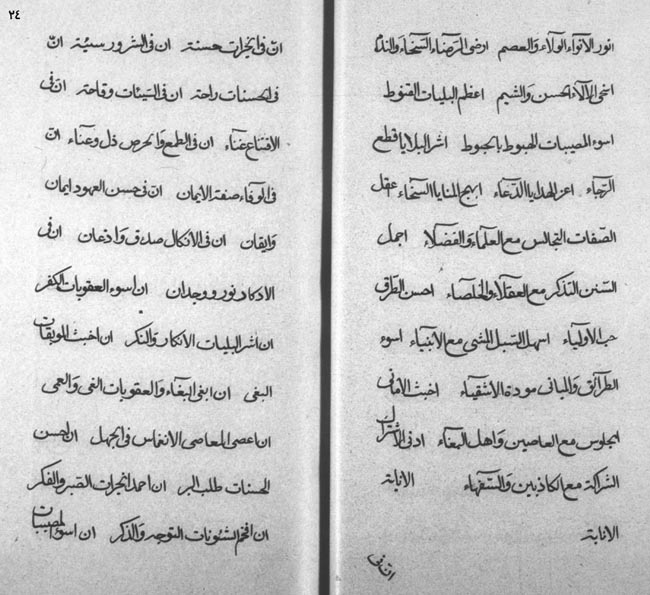 ٢٤
انور الانواء الولاء والعصم ارضى المرضاء السخاء والندا
اضی الالاء الحسن والشیم اعظم البلیات القنوط
اسوء المصیبات الهبوط بالحبوط اشر البلایا قطع
الرجاء اعز الهدایا الدعاء ابهج المنایا السخاء عقل
الصفات التجالس مع العلماء والفضلاء اجمل
السنن التذکر مع العقلاء والخلصاء احسن الطرق
حب الاولیاء اسهل السبل المشی مع الانبیاء اسوء
الطرائق والمبانی مودة الاشقیاء اخبث الامانی
الجلوس مع العاصین واهل البغاء ادنی الاشراک
الشراکة مع الکاذبین والسفهاء الانابة
الانابة
ان فی
ان فی الخیرات حسنة ان فی الشرور سیئة ان
فی الحسنات راحة ان فی السیئات وقاحة ان فی
الاقتناع غناء ان فی الطمع والحرص ذل وعناء ان
فی الوفاء صفة الایمان ان فی حسن العهود ایمان
وایقان ان فی الاتکال صدق واذعان ان فی
الاذکار نور ووجدان ان اسوء العقوبات الکفر
ان اشر البلیات الانکار والنکر ان اخبث الموبقات
البغی ان ابغی البغاء والعقوبات الغی والعمی
ان اعصی المعاصی الانغماس فی الجهل ان احسن
الحسنات طلب البر ان احمد الخیرات الصبر والفکر
ان افخم الشئونات التوجه والذکر ان اسوء المصیبات